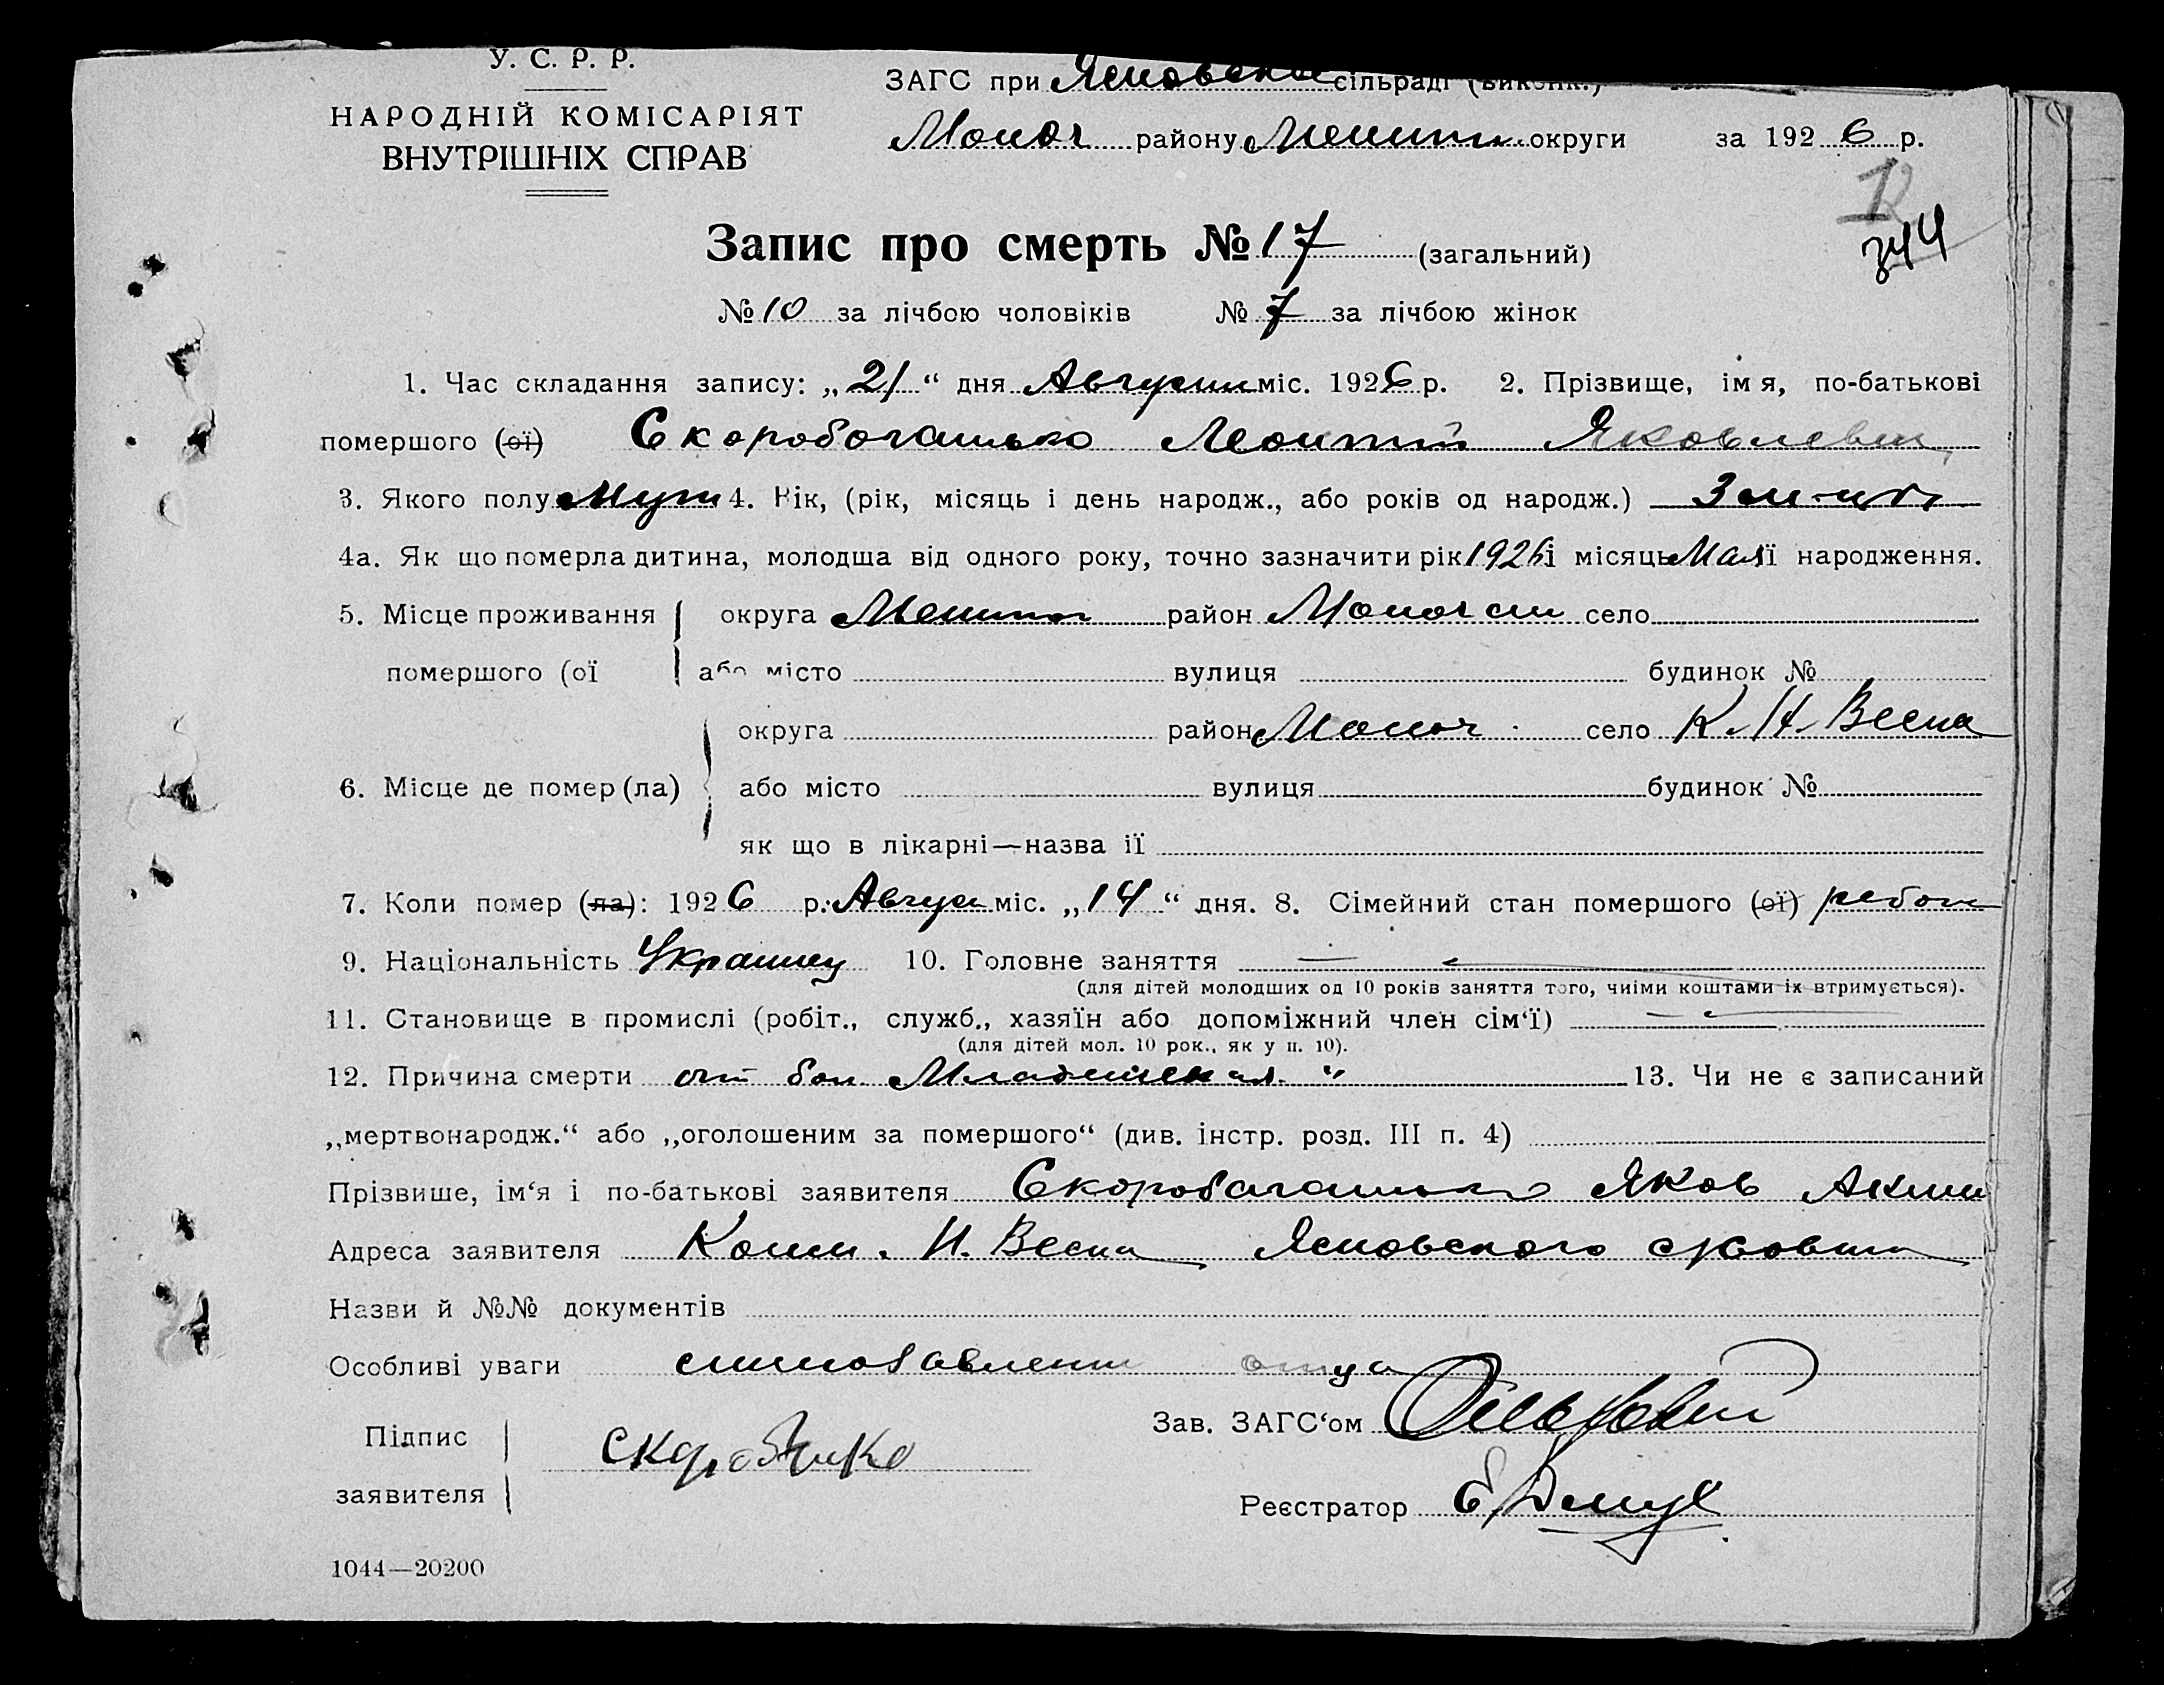 У. С. Р. Р.
НАРОДНІЙ КОМІСАРІЯТ
ВНУТРІШНІХ СПРАВ
ЗАГС при сільраді (виконк.)
району округи за 1926 р.
344
Запис про смерть № 17 (загальний)
№ 10 за лічбою чоловіків № 7 за лічбою жінок
1. Час складання запису: „21“ дня Августа міс. 1926 р. 2. Прізвище, імя, по-батькові
помершого (ої) Скоробогатько Леонтій Яковлевич
3. Якого полу Муж 4. Вік, (рік, місяць і день народж., або років од народж.) 3
4а. Як що померла дитина, молодша від одного року, точно зазначити рік 1926 і місяць Мая її народження.
5. Місце проживання округа район село
помершого (ої або місто вулиця будинок №
округа район село К. Н. Весна
6. Місце де помер (ла) або місто вулиця будинок №
як що в лікарні—назва її
7. Коли помер (ла): 1926 р. Август міс. „14“ дня. 8. Сімейний стан помершого (ої)
9. Національність Украинец 10. Головне заняття —
(для дітей молодших од 10 років заняття того, чиїми коштами їх втримується).
11. Становище в промислі (робіт., служб., хазяїн або допоміжний член сім‘ї) —
(для дітей мол. 10 рок., як у п. 10).
12. Причина смерти от бол Младенская 13. Чи не є записаний
„мертвонародж.“ або „оголошеним за помершого“ (див. інстр. розд. III п. 4)
Прізвише, ім‘я і по-батькові заявителя Скоробагатько Яков
Адреса заявителя Н. Весна Ясновского
Назви й №№ документів
Особливі уваги отца
Підпис
заявителя
Зав. ЗАГС‘ом
Реєстратор
1044—20200